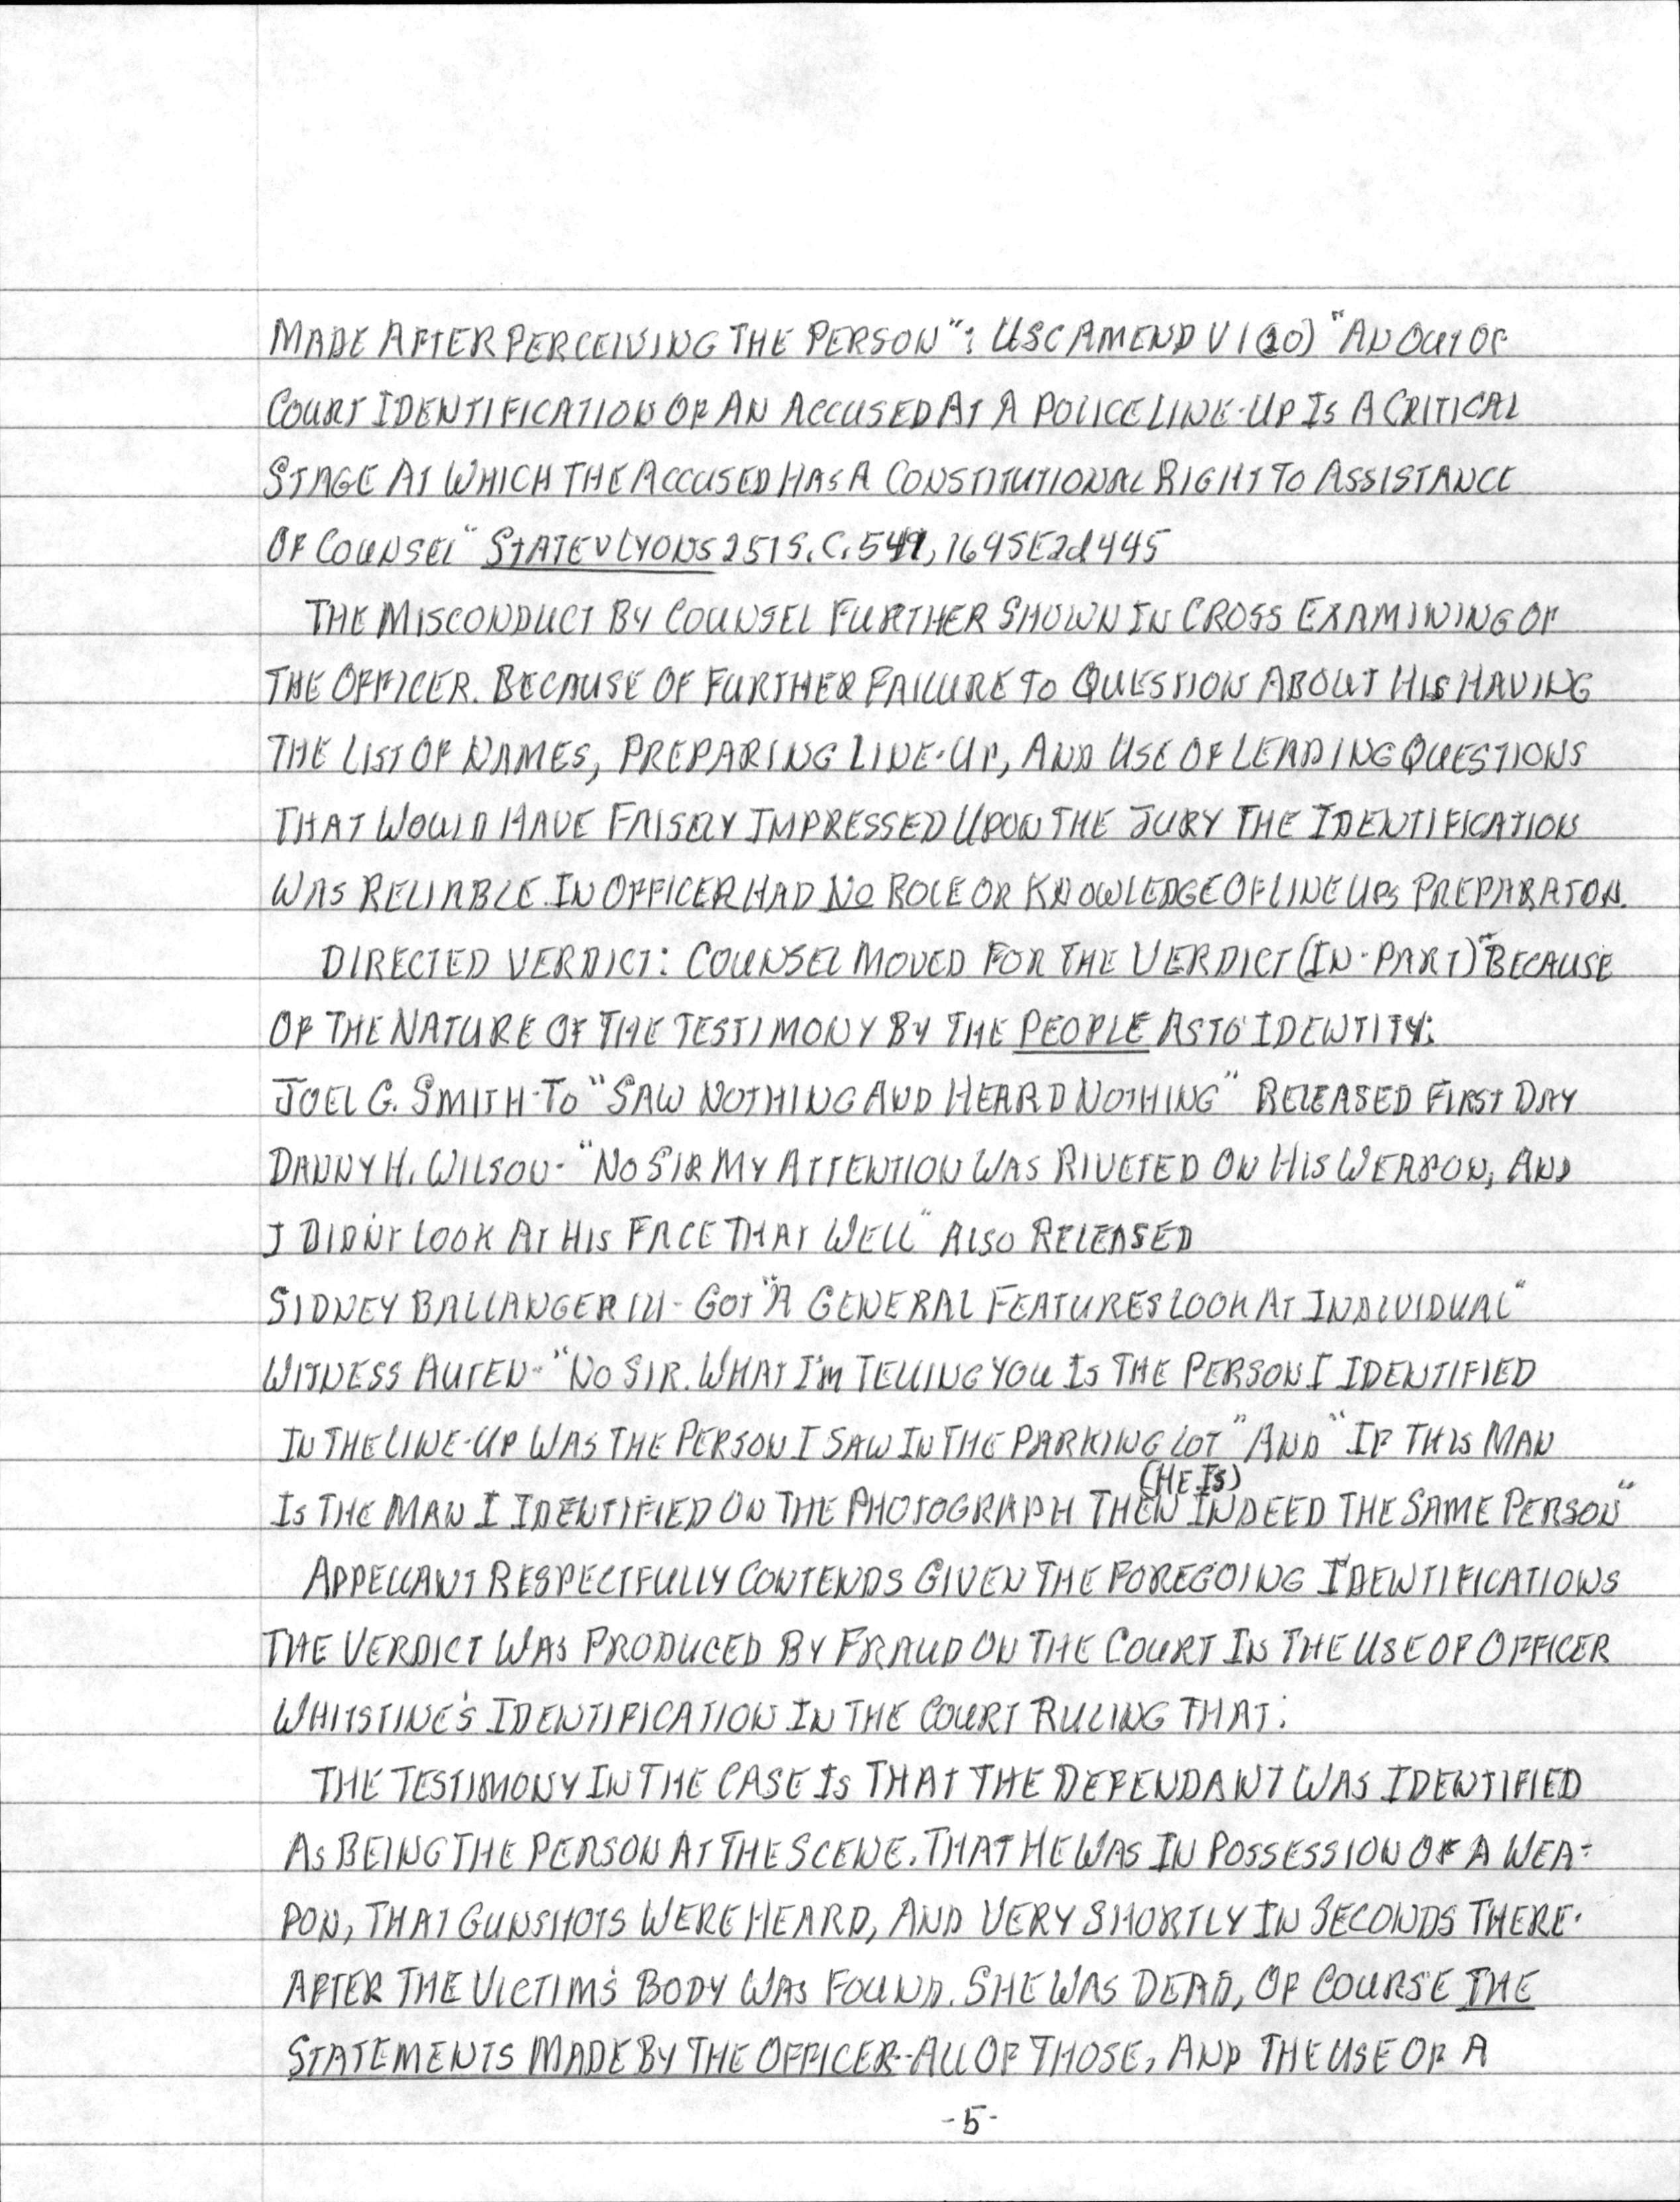 MADE AFTER PERCEIVING THE PERSON": USC AMEND VI (20) "AN OUT OF
COURT IDENTIFICATION OF AN ACCUSED AT A POLICE LINE-UP IS A CRITICAL
STAGE AT WHICH THE ACCUSED HAS A CONSTITUTIONAL RIGHT TO ASSISTANCE
OF COUNSEL" STATE V LYONS 251 S.C. 541, 164 SE2d 445
THE MISCONDUCT BY COUNSEL FURTHER SHOWN IN CROSS EXAMINING OF
THE OFFICER. BECAUSE OF FURTHER FAILURE TO QUESTION ABOUT HIS HAVING
THE LIST OF NAMES, PREPARING LINE-UP, AND USE OF LEADING QUESTIONS
THAT WOULD HAVE FALSELY IMPRESSED UPON THE JURY THE IDENTIFICATION
WAS RELIABLE. IN OFFICER HAD NO ROLE OR KNOWLEDGE OF LINE UPS PREPARATON.
DIRECTED VERDICT: COUNSEL MOVED FOR THE VERDICT (IN-PART) "BECAUSE
OF THE NATURE OF THE TESTIMONY BY THE PEOPLE AS TO IDENTITY:
JOEL G. SMITH-TO "SAW NOTHING AND HEARD NOTHING" RELEASED FIRST DAY
DANNY H. WILSON- "NO SIR MY ATTENTION WAS RIVETED ON HIS WEAPON, AND
I DIDN'T LOOK AT HIS FACE THAT WELL" ALSO RELEASED
SIDNEY BALLANGER III- GOT "A GENERAL FEATURES LOOK AT INDIVIDUAL"
WITNESS AUTEN- "NO SIR. WHAT I'M TELLING YOU IS THE PERSON I IDENTIFIED
IN THE LINE-UP WAS THE PERSON I SAW IN THE PARKING LOT" AND "IF THIS MAN
IS THE MAN I IDENTIFIED ON THE PHOTOGRAPH THEN (HE IS) INDEED THE SAME PERSON"
APPELLANT RESPECTFULLY CONTENDS GIVEN THE FOREGOING IDENTIFICATIONS
THE VERDICT WAS PRODUCED BY FRAUD ON THE COURT IN THE USE OF OFFICER
WHITSTINE'S IDENTIFICATION IN THE COURT RULING THAT:
THE TESTIMONY IN THE CASE IS THAT THE DEFENDANT WAS IDENTIFIED
AS BEING THE PERSON AT THE SCENE. THAT HE WAS IN POSSESSION OF A WEA-
PON, THAT GUNSHOTS WERE HEARD, AND VERY SHORTLY IN SECONDS THERE-
AFTER THE VICTIM'S BODY WAS FOUND. SHE WAS DEAD, OF COURSE THE
STATEMENTS MADE BY THE OFFICER--ALL OF THOSE, AND THE USE OF A
-5-